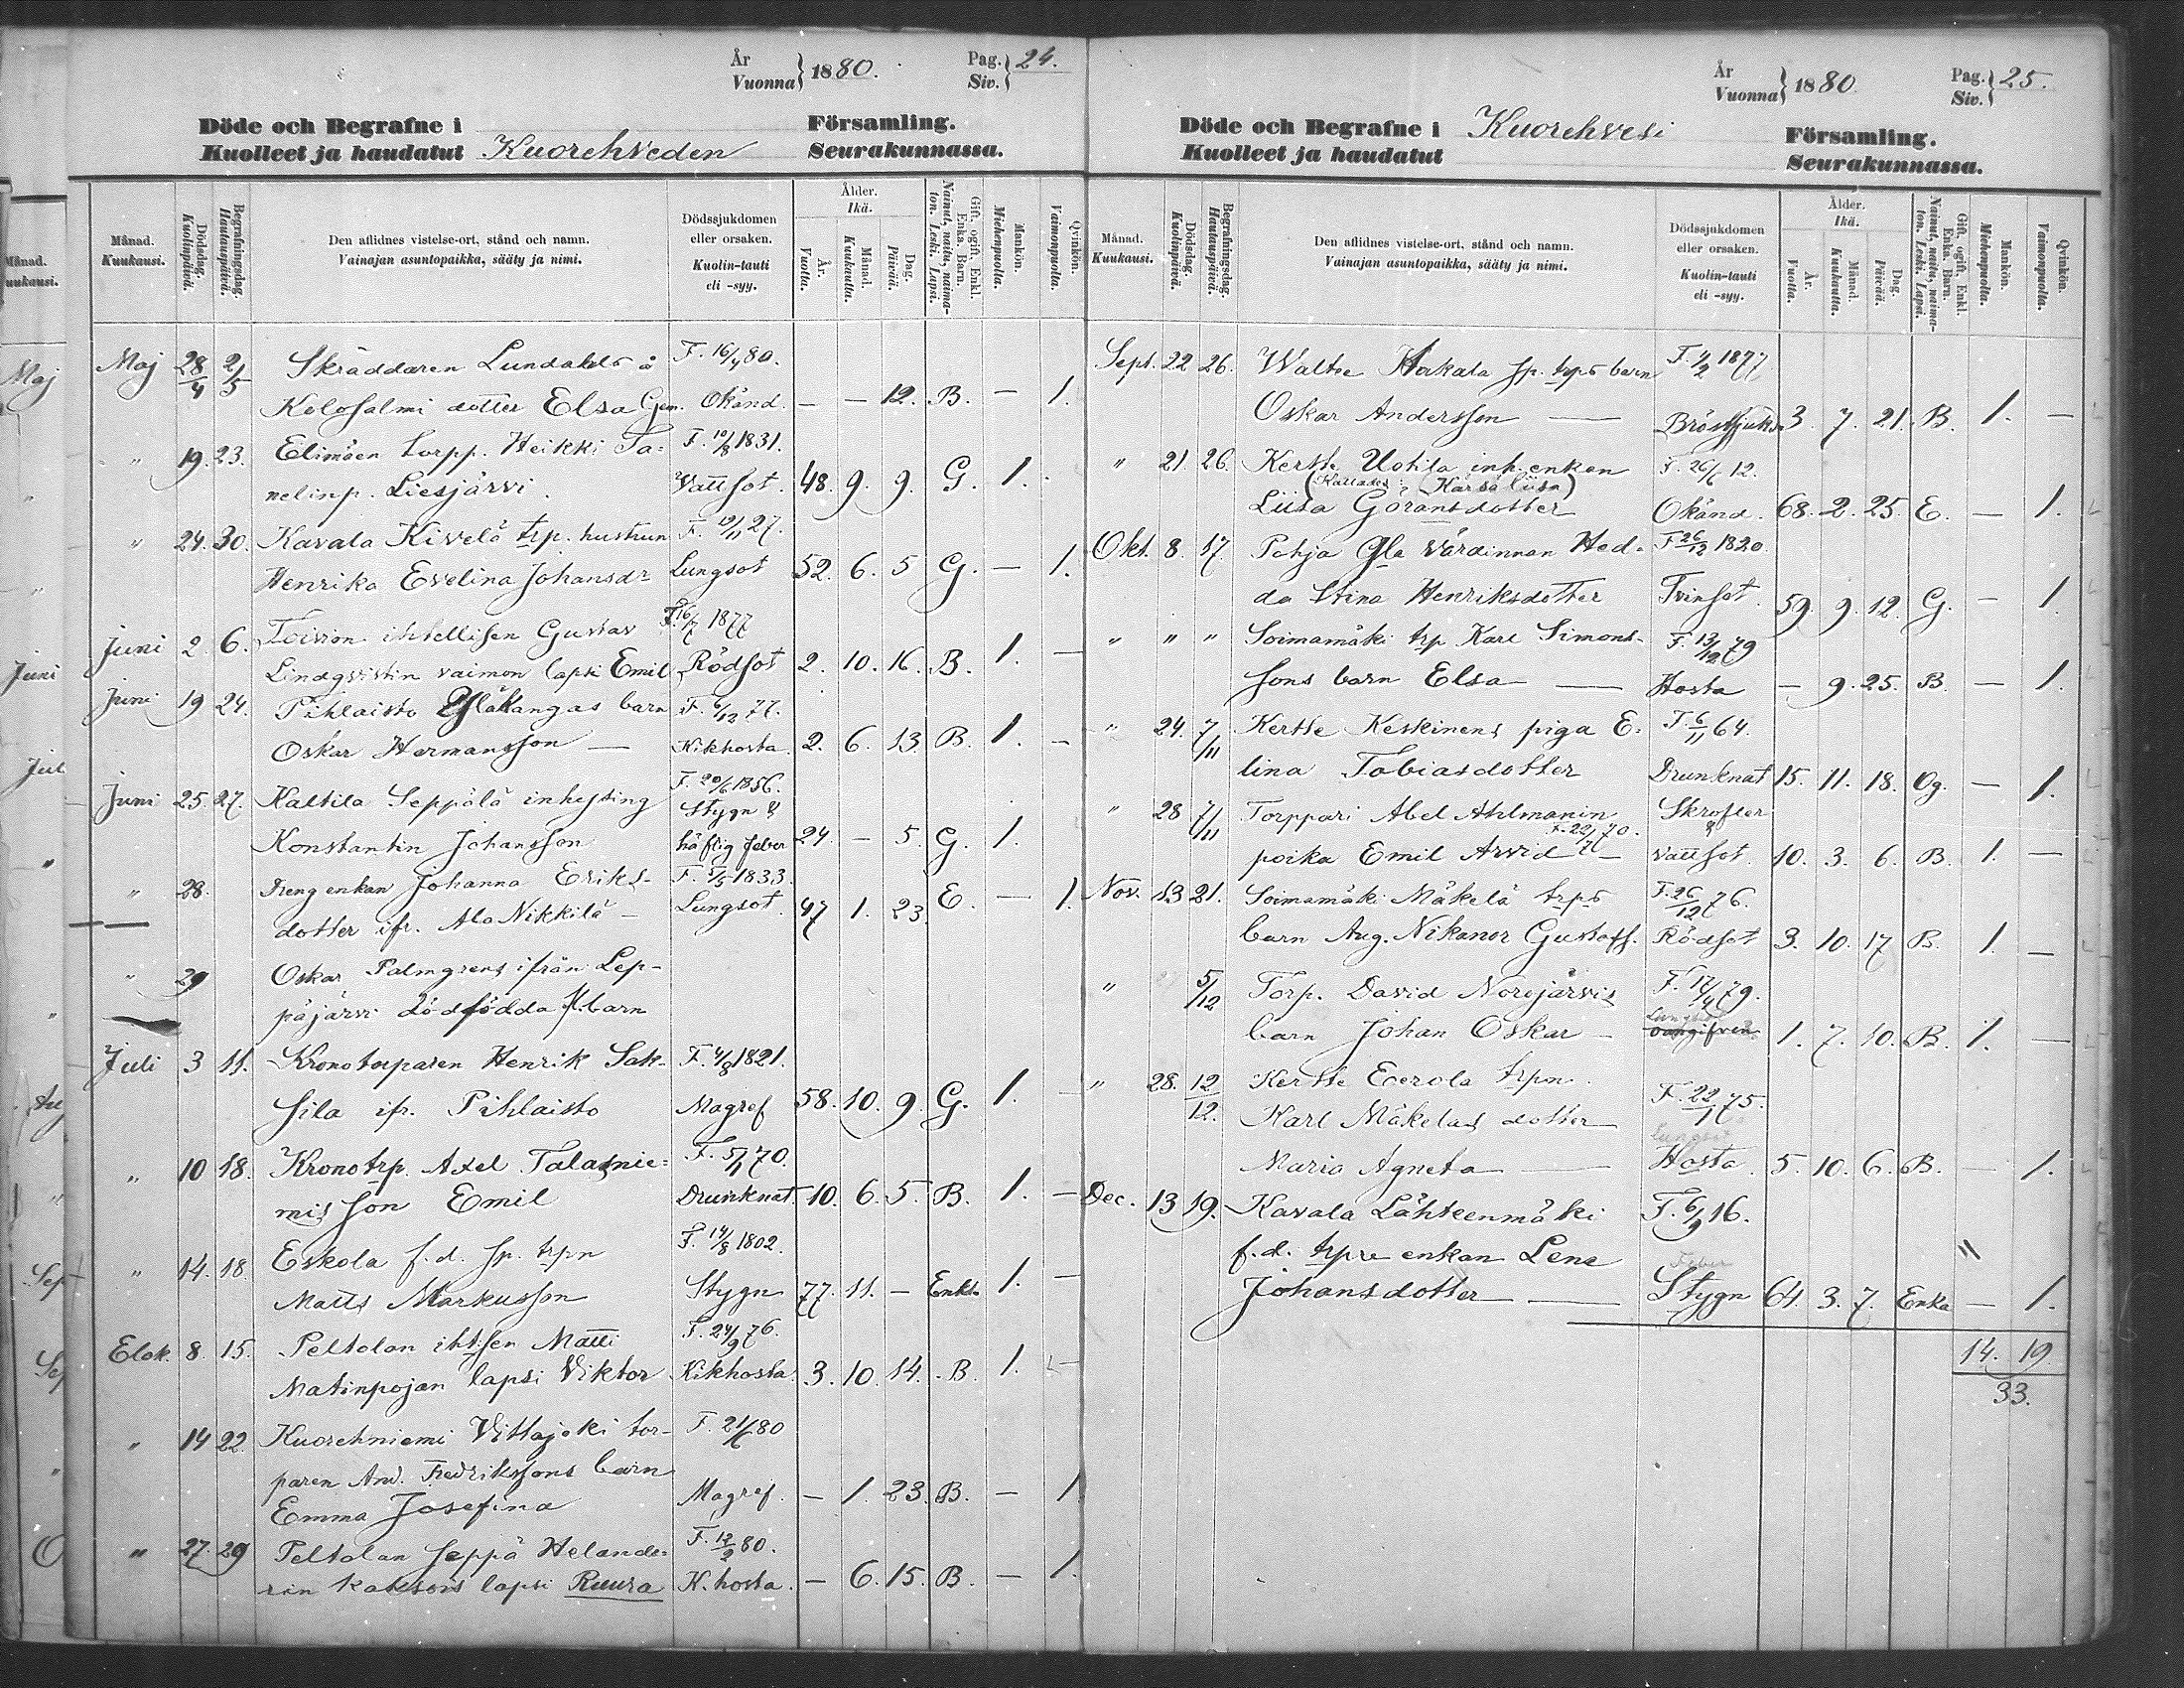 År
Vuonna } 1880.
Pag.
Siv. } 24.
Döde och Begrafne i
Kuolleet ja haudatut Kuorehveden
Församling.
Seurakunnassa.
Månad.
Kuukausi.
Dödsdag.
Kuolinpäivä.
Begrafningsdag.
Hautauspäivä.
Den aflidnes vistelse-ort, stånd och namn.
Vainajan asuntopaikka, sääty ja nimi.
Dödssjukdomen
eller orsaken.
Kuolin-tauti
eli -syy.
Ålder.
Ikä.
År.
Vuotta.
Månad.
Kuukautta.
Dag.
Päivää.
Gift, ogift, Enkl.
Enka. Barn.
Nainut, naitu, naima-
ton. Leski. Lapsi.
Mankön.
Miehenpuolta.
Qvinkön.
Vaimonpuolta.
Maj 28/4 2/5 Skräddaren Lundahls å F. 16/4 80.
Kolosalmi dotter Elsa Gem. Okänd. — — 12. B. — 1.
" 19. 23. Elimäen torpp. Heikki Ta- F. 10/8 1831.
nelinp. Liesjärvi. Vattsot. 48. 9. 9. G. 1.
" 24. 30. Kavala Kivelä trp. hustrun F. 19/11 27.
Henrika Evelina Johansdr Lungsot 52. 6. 5 G. — 1.
Juni 2. 6. Toivion ihtellisen Gustav F. 16/7 1877
Lindqvistin vaimon lapsi Emil Rödsot 2. 10. 16. B. 1. —
Juni 19 24. Pihlaisto Yläkangas barn F. 6/12 77.
Oskar Hermansson — Kikhosta. 2. 6. 13. B. 1. —
Juni 25. 27. Kaltila Seppälä inhysing F. 20/6 1856.
Stygn &
Konstantin Johansson häftig feber 24. — 5. G. 1.
" 28. Dreng enkan Johanna Eriks- F. 5/5 1833.
dotter ifr. Ala Nikkilä — Lungsot. 47 1. 23. E. — 1.
" 29 Oskar Palmgrens ifrån Lep-
päjärvi dödfödda fl. barn
Juli 3 11. Kronotorparen Henrik Sak- F. 4/8 1821.
sila ifr. Pihlaisto Magref 58. 10. 9. G. 1. —
" 10 18. Kronotrp. Axel Talasnie- F. 5/1 70.
mis son Emil Drunknat. 10. 6. 5. B. 1. —
" 14. 18. Eskola f.d. sp. trpn F. 14/8 1802.
Matts Markusson Stygn 77. 11. — Enkl. 1. —
Elok. 8. 15. Peltolan ihtsen Matti F. 24/9 76.
Matinpojan lapsi Viktor Kikhosta 3. 10. 14. B. 1. —
" 14 22. Kuorehniemi Vittajoki tor- F. 21/6 80
paren And. Fredrikssons barn
Emma Josefina Magref. — 1. 23. B. — 1
" 27. 29 Peltolan seppä Helande- F. 12/2 80.
rin kaksois lapsi Ruura K. hosta. — 6. 15. B. — 1.
År
Vuonna } 1880.
Pag.
Siv. } 25.
Döde och Begrafne i
Kuolleet ja haudatut Kuorehvesi
Församling.
Seurakunnassa.
Månad.
Kuukausi.
Dödsdag.
Kuolinpäivä.
Begrafningsdag.
Hautauspäivä.
Den aflidnes vistelse-ort, stånd och namn.
Vainajan asuntopaikka, sääty ja nimi.
Dödssjukdomen
eller orsaken.
Kuolin-tauti
eli -syy.
Ålder.
Ikä.
År.
Vuotta.
Månad.
Kuukautta.
Dag.
Päivää.
Gift, ogift, Enkl.
Enka. Barn.
Nainut, naitu, naima-
ton. Leski. Lapsi.
Mankön.
Miehenpuolta.
Qvinkön.
Vaimonpuolta.
Sept. 22 26. Waltse Hakala sp. trps barn F. 1/2 1877
Oskar Andersson — Bröstsjukd. 3. 7. 21. B. 1. —
" 21. 26. Kertte Uotila inh. enkan F. 26/6 12.
(Kallades: Karsa Liisa)
Liisa Göransdotter Okänd. 68. 2. 25. E. — 1.
Okt. 8. 17. Pohja Gla värdinnan Hed- F. 26/12 1820.
da Stina Henriksdotter Tvinsot. 59. 9. 12. G. — 1.
" " " Soimamäki trp Karl Simons- F. 13/12 79
sons barn Elsa — Hosta — 9. 25. B. — 1.
" 24. 7/11 Kertte Keskinens piga E- F. 6/11 64.
lina Tobiasdotter Drunknat 15. 11. 18. Og. — 1.
" 28 7/11 Torppari Abel Ahlmanin Skrofler
F. 22/7 70. &
poika Emil Arvid — vattsot. 10. 3. 6. B. 1. —
Nov. 13 21. Soimamäki Mäkelä trps F. 26/12 76.
barn Aug. Nikanor Gustafs. Rödsot 3. 10. 17 B. 1. —
" 5/12 Torp. David Norojärvis F. 17/4 79.
Lungsot
barn Johan Oskar — oangifven 1. 7. 10. B. 1. —
" 28. 12/12. Kertte Eerola trpn.
Karl Mäkeläs dotter F. 22/1 75.
Lungsot
Maria Agneta — Hosta 5. 10. 6. B. — 1.
Dec. 13 19. Kavala Lähteenmäki F. 6/9 16.
f.d. trpre enkan Lena Feber
Johansdotter — Stygn 64. 3. 7. Enka — 1.
14. 19
33.
Maj
"
Juni
Jul
"
Aug
Sep
Sep
O